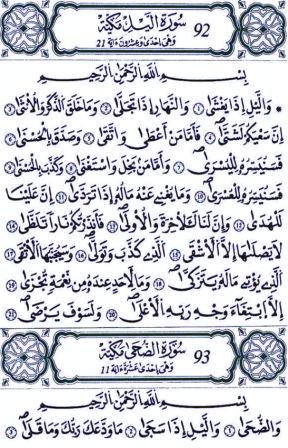 سُورَةُ اللَّيْلِ مَكِّيَّة 92
وَهِيَ إِحْدَىٰ وَعِشْرُونَ آيَة 21
بِسْمِ اللَّهِ الرَّحْمَٰنِ الرَّحِيمِ
وَاللَّيْلِ إِذَا يَغْشَىٰ ١ وَالنَّهَارِ إِذَا تَجَلَّىٰ ٢ وَمَا خَلَقَ الذَّكَرَ وَالْأُنثَىٰ ٣
إِنَّ سَعْيَكُمْ لَشَتَّىٰ ٤ فَأَمَّا مَنْ أَعْطَىٰ وَاتَّقَىٰ ٥ وَصَدَّقَ بِالْحُسْنَىٰ ٦
فَسَنُيَسِّرُهُ لِلْيُسْرَىٰ ٧ وَأَمَّا مَن بَخِلَ وَاسْتَغْنَىٰ ٨ وَكَذَّبَ بِالْحُسْنَىٰ ٩
فَسَنُيَسِّرُهُ لِلْعُسْرَىٰ ١٠ وَمَا يُغْنِي عَنْهُ مَالُهُ إِذَا تَرَدَّىٰ ١١ إِنَّ عَلَيْنَا
لَلْهُدَىٰ ١٢ وَإِنَّ لَنَا لَلْآخِرَةَ وَالْأُولَىٰ ١٣ فَأَنذَرْتُكُمْ نَارًا تَلَظَّىٰ ١٤
لَا يَصْلَاهَا إِلَّا الْأَشْقَى ١٥ الَّذِي كَذَّبَ وَتَوَلَّىٰ ١٦ وَسَيُجَنَّبُهَا الْأَتْقَى ١٧
الَّذِي يُؤْتِي مَالَهُ يَتَزَكَّىٰ ١٨ وَمَا لِأَحَدٍ عِندَهُ مِن نِّعْمَةٍ تُجْزَىٰ ١٩
إِلَّا ابْتِغَاءَ وَجْهِ رَبِّهِ الْأَعْلَىٰ ٢٠ وَلَسَوْفَ يَرْضَىٰ ٢١
سُورَةُ الضُّحَىٰ مَكِّيَّة 93
وَهِيَ إِحْدَىٰ عَشْرَةَ آيَة 11
بِسْمِ اللَّهِ الرَّحْمَٰنِ الرَّحِيمِ
وَالضُّحَىٰ ١ وَاللَّيْلِ إِذَا سَجَىٰ ٢ مَا وَدَّعَكَ رَبُّكَ وَمَا قَلَىٰ ٣